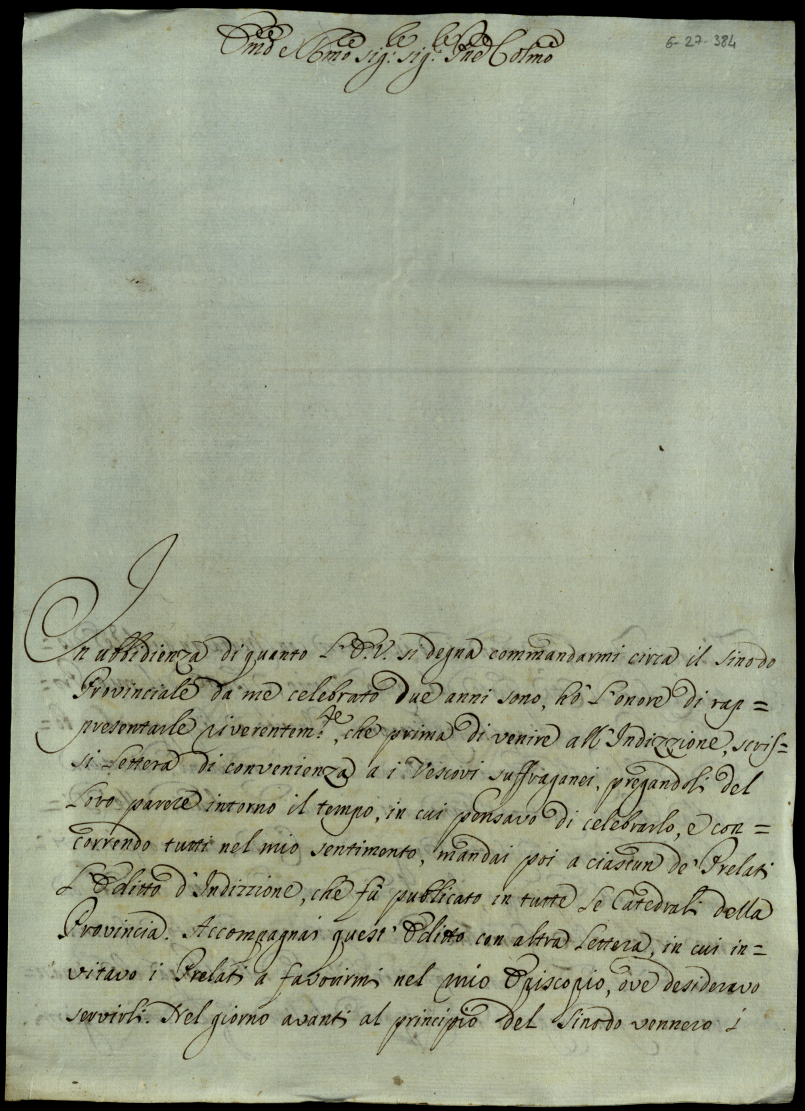 Emo e Rmo sig.re sig.re Pne Colmo
6-27-384
In ubbidienza di quanto L'E.V. si degna commandarmi circa il Sinodo
Provinciale da me celebrato due anni sono, hò L'onore di rap=
presentarle riverentem.te, che prima di venire all'Indizzione, scris=
si Lettera di convenienza a i Vescovi suffraganei, pregandoli del
Loro parere intorno il tempo, in cui pensavo di celebrarlo, e con=
correndo tutti nel mio sentimento, mandai poi a ciascun de' Prelati
L'Editto d'Indizzione, che fù publicato in tutte Le Catedrali della
Provincia. Accompagnai quest'Editto con altra Lettera, in cui in=
vitavo i Prelati a favorirmi nel mio Episcopio, ove desideravo
servirli. Nel giorno avanti al principio del Sinodo vennero i